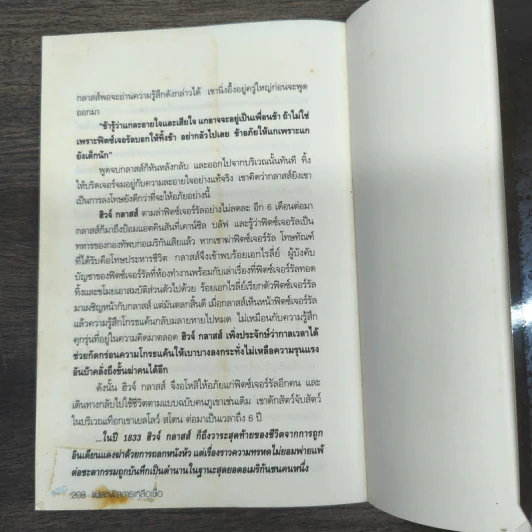 กลาสส์พอจะอ่านความรู้สึกดังกล่าวได้ เขานิ่งอึ้งอยู่ครู่ใหญ่ก่อนจะพูด
ออกมา
"ข้ารู้ว่าแกละอายใจและเสียใจ แกอาจจะอยู่เป็นเพื่อนข้า ถ้าไม่ใช่
เพราะฟิตซ์เจอรัลบอกให้ทิ้งข้า อย่ากลัวไปเลย ข้าอภัยให้แกเพราะแก
ยังเด็กนัก"
พูดจบกลาสส์ก็หันหลังกลับ และออกไปจากบริเวณนั้นทันที ทิ้ง
ให้บริดเจอร์จมอยู่กับความละอายใจอย่างแท้จริง เขาคิดว่ากลาสส์ยิงเขา
เป็นการลงโทษยังดีกว่าที่จะให้อภัยอย่างนี้
ฮิวจ์ กลาสส์ ตามล่าฟิตซ์เจอร์รัลอย่างไม่ลดละ อีก 6 เดือนต่อมา
กลาสส์ก็มาถึงป้อมแอตคินสันที่เคาน์ซิล บลัฟ และรู้ว่าฟิตซ์เจอรัลเป็น
ทหารของกองทัพบกอเมริกันเสียแล้ว หากเขาฆ่าฟิตซ์เจอร์รัล โทษทัณฑ์
ที่ได้รับคือโทษประหารชีวิต กลาสส์จึงเข้าพบร้อยเอกไรลี่ย์ ผู้บังคับ
บัญชาของฟิตซ์เจอร์รัลที่ห้องทำงานพร้อมกับเล่าเรื่องที่ฟิตซ์เจอร์รัลทอด
ทิ้งและขโมยเอาสมบัติส่วนตัวไปด้วย ร้อยเอกไรลี่ย์เรียกตัวฟิตซ์เจอร์รัล
มาเผชิญหน้ากับกลาสส์ แต่มันตลกสิ้นดี เมื่อกลาสส์เห็นหน้าฟิตซ์เจอร์รัล
แล้วความรู้สึกโกรธแค้นกลับมลายหายไปหมด ไม่เหมือนกับความรู้สึก
คุกรุ่นที่อยู่ในความคิดมาตลอด ฮิวจ์ กลาสส์ เพิ่งประจักษ์ว่ากาลเวลาได้
ช่วยกัดกร่อนความโกรธแค้นให้เบาบางลงกระทั่งไม่เหลือความรุนแรง
อันบ้าคลั่งถึงขั้นฆ่าคนได้อีก
ดังนั้น ฮิวจ์ กลาสส์ จึงอโหสิให้อภัยแก่ฟิตซ์เจอร์รัลอีกคน และ
เดินทางกลับไปใช้ชีวิตตามแบบฉบับคนภูเขาเช่นเดิม เขาดักสัตว์จับสัตว์
ในบริเวณเทือกเขาเยลโลว์ สโตน ต่อมาเป็นเวลาถึง 6 ปี
...ในปี 1833 ฮิวจ์ กลาสส์ ก็ถึงวาระสุดท้ายของชีวิตจากการถูก
อินเดียนแดงฆ่าด้วยการถลกหนังหัว แต่เรื่องราวความทรหดไม่ยอมพ่ายแพ้
ต่อชะตากรรมถูกบันทึกเป็นตำนานในฐานะสุดยอดอเมริกันชนคนหนึ่ง
208